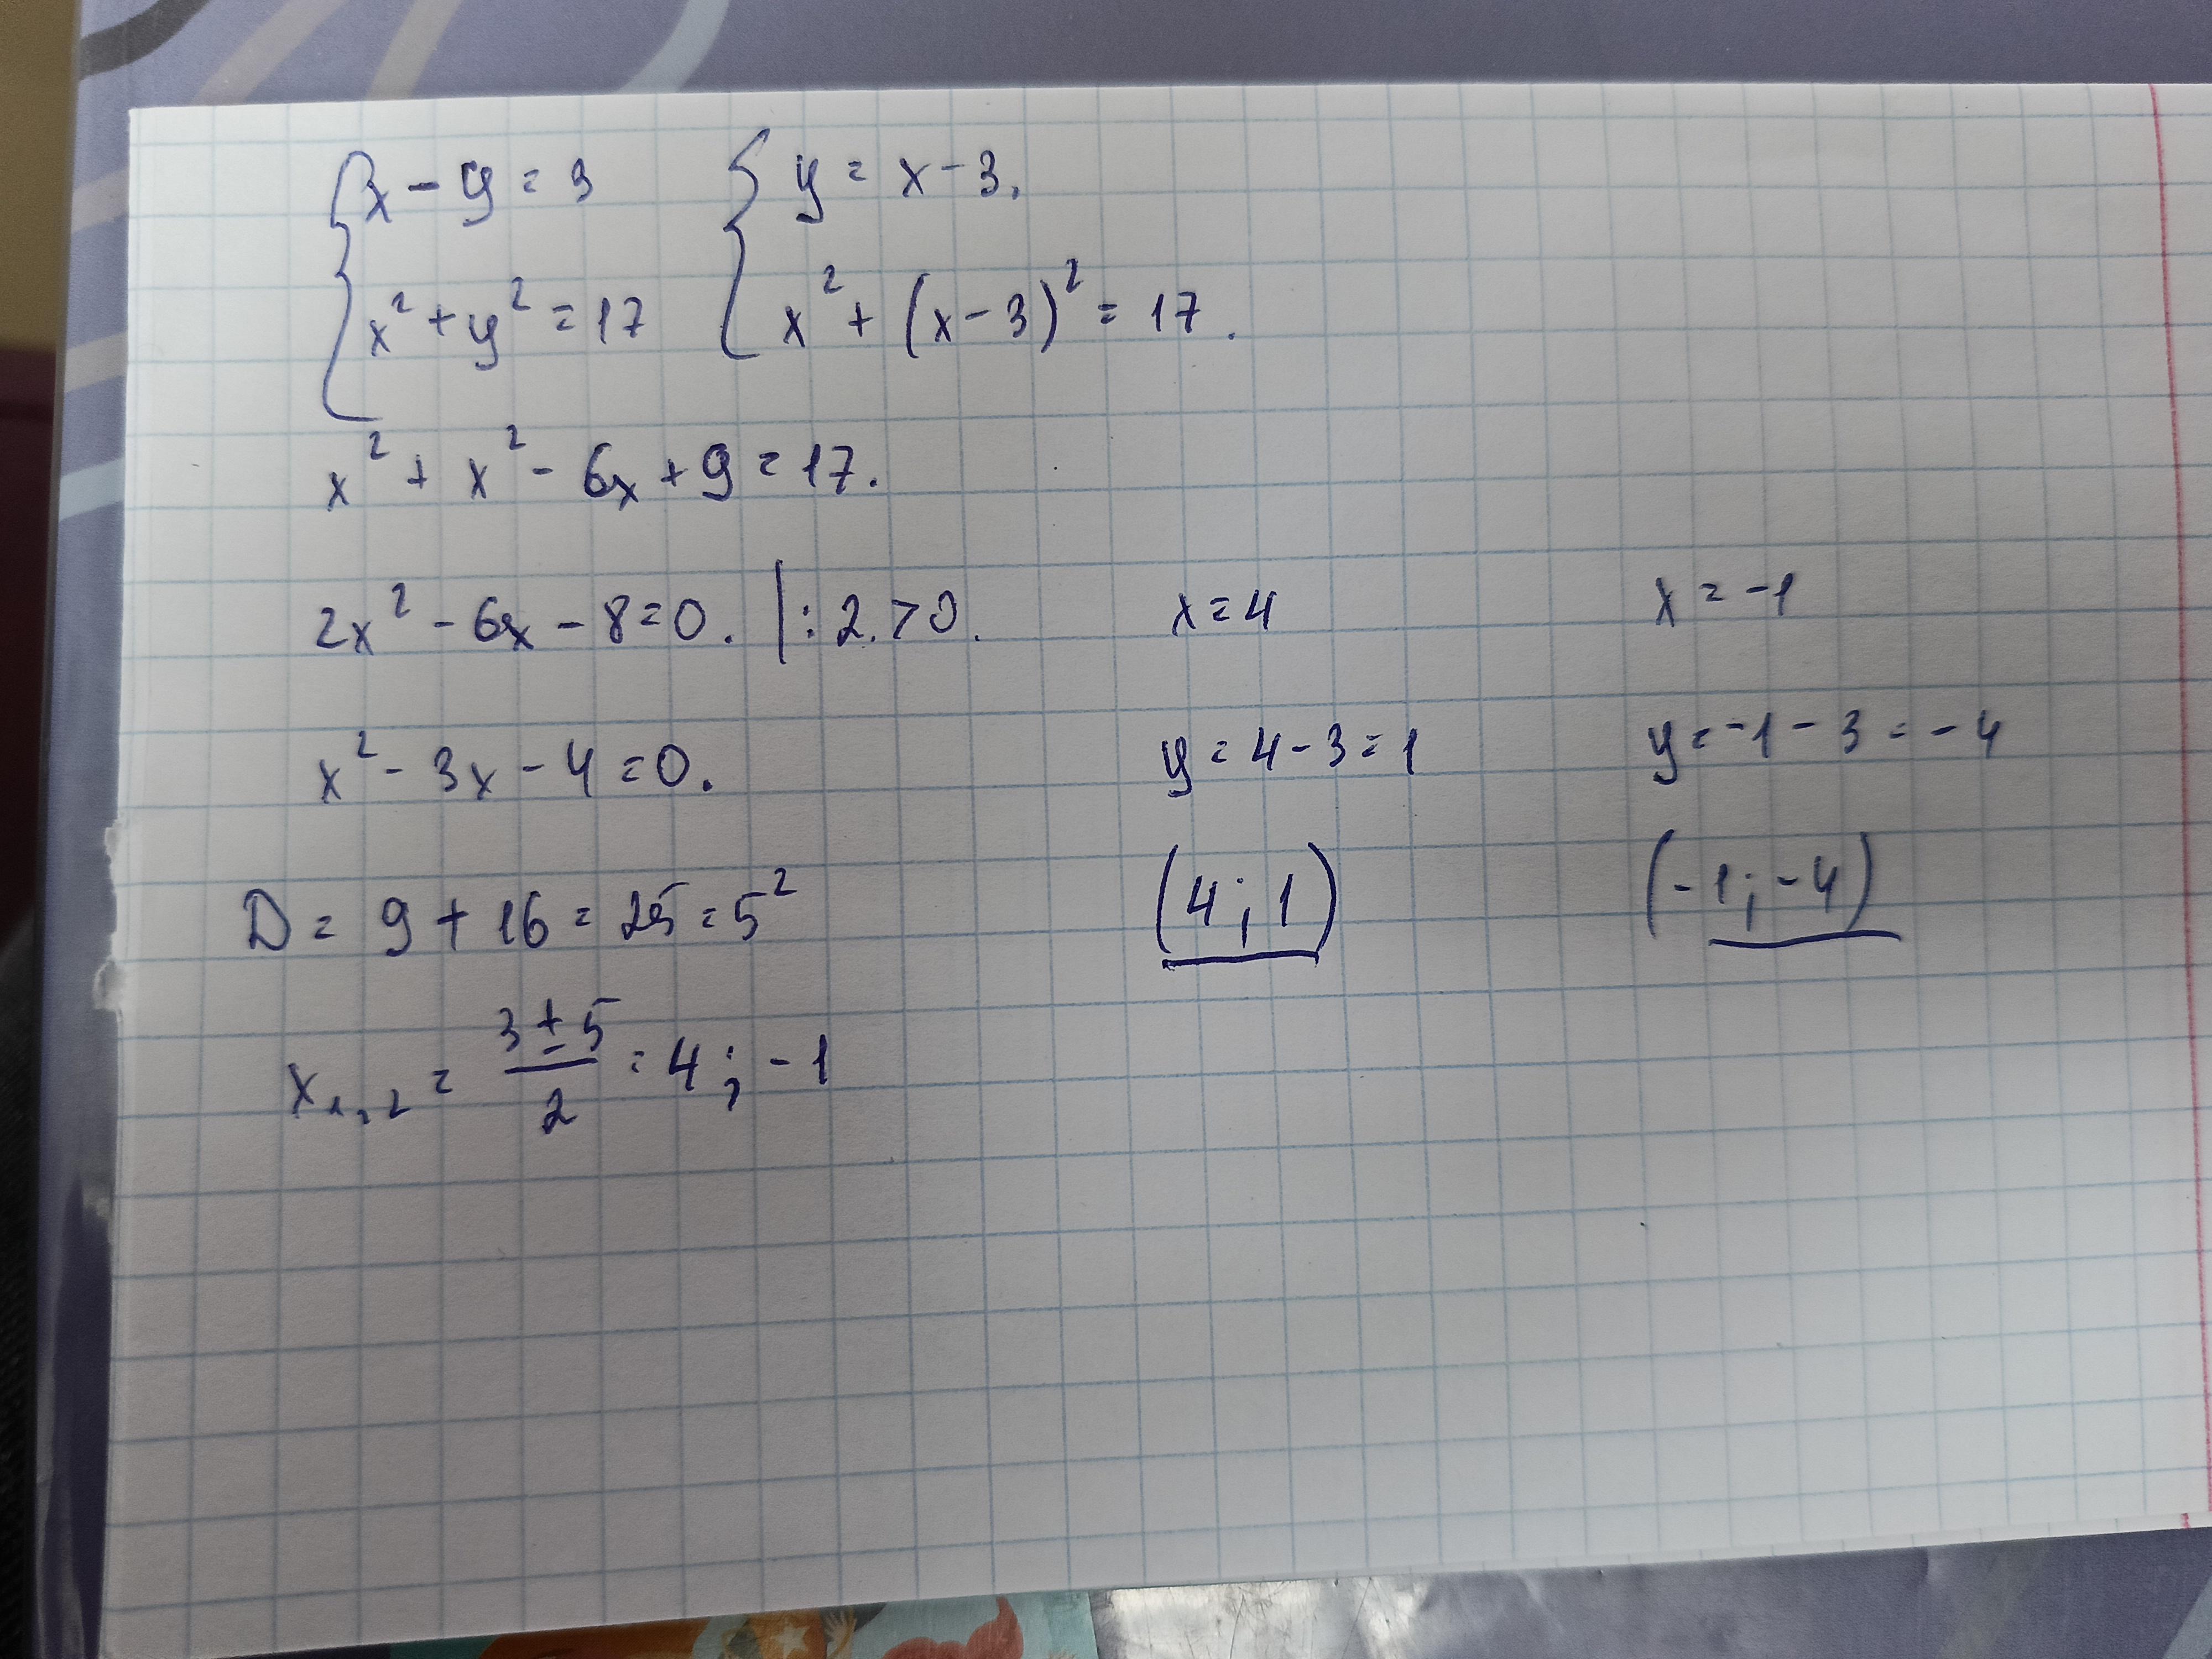 { x - y = 3    { y = x - 3,
x² + y² = 17    x² + (x - 3)² = 17.
x² + x² - 6x + 9 = 17.
2x² - 6x - 8 = 0. | : 2 > 0.
x² - 3x - 4 = 0.
D = 9 + 16 = 25 = 5²
x₁,₂ = (3 ± 5)/2 = 4 ; -1
x = 4
y = 4 - 3 = 1
(4 ; 1)
x = -1
y = -1 - 3 = -4
(-1 ; -4)